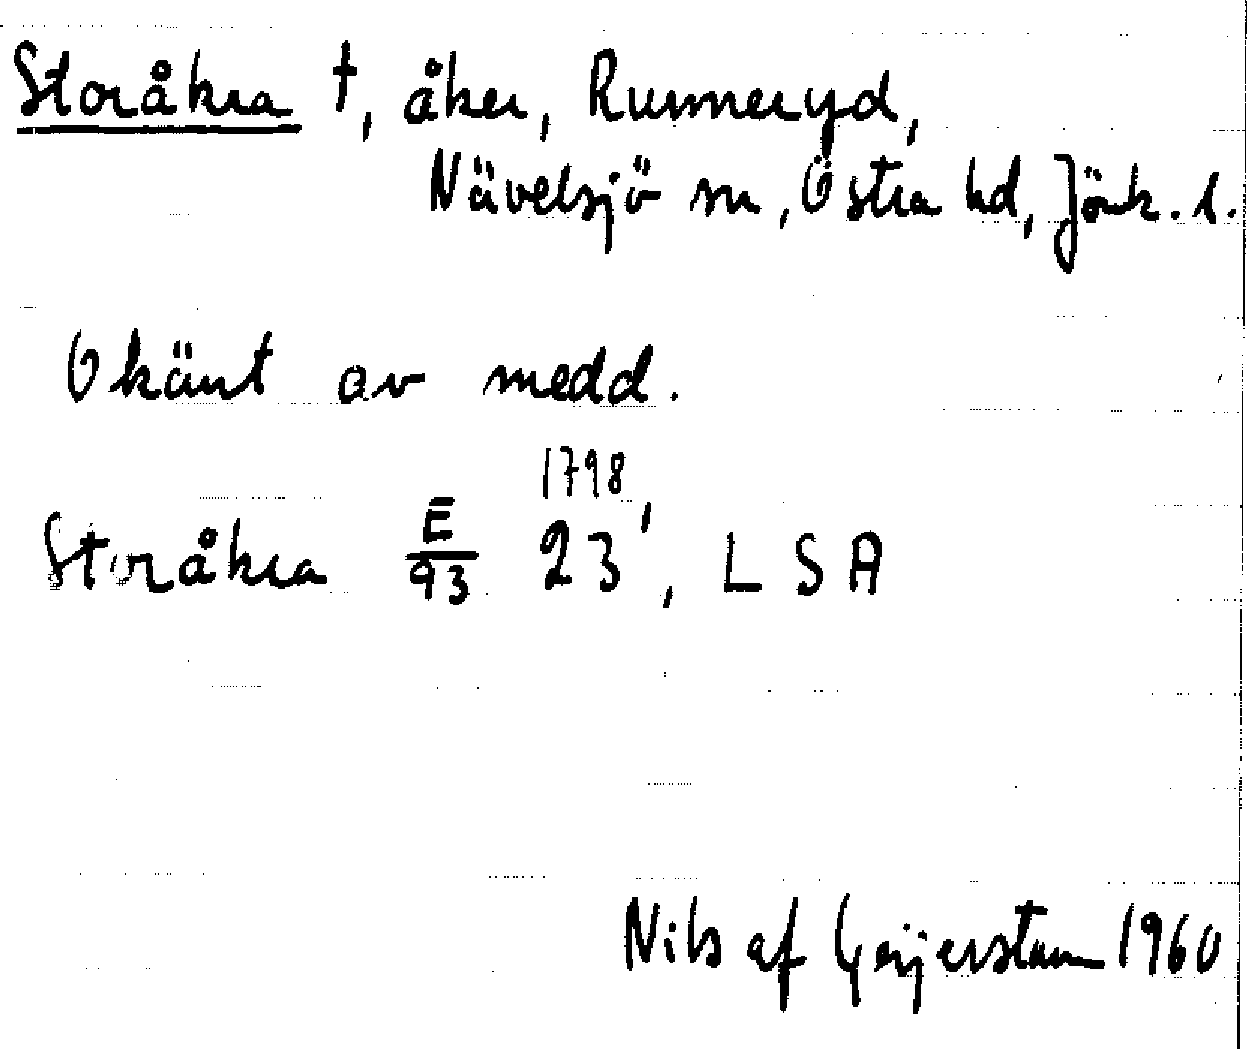 Storåkra †, åker, Rummeryd,
Nävelsjö sn, Östra hd, Jönk. l.
Okänt av medd.
1798,
Storåkra E/93 23, LSA
Nils af Geijerstam 1960